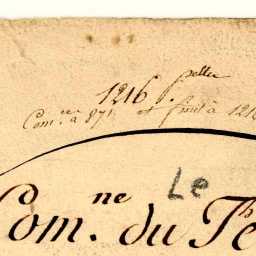 1216 pelles
Com.ce à 871. et finit à 1216
Le
Com.ne du Te